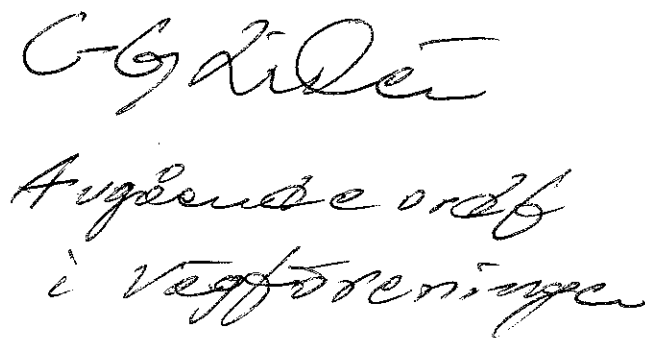 C-G Lidén
Avgående ordf
i Vägföreningen